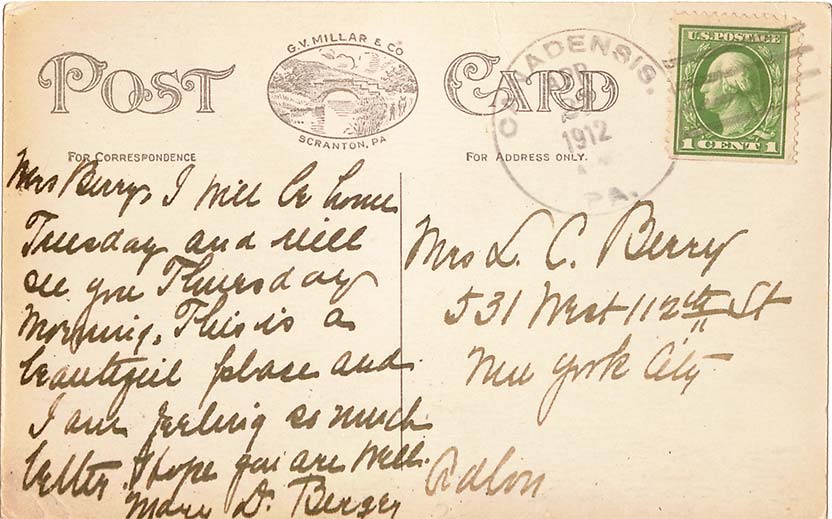 POST CARD
G.V. MILLAR & CO
SCRANTON, PA
FOR CORRESPONDENCE
FOR ADDRESS ONLY.
CANADENSIS,
APR
1912
PA.
U.S. POSTAGE
1 CENT 1
Mrs Berry, I will be home
Tuesday and will
see you Thursday
morning, This is a
beautiful place and
I am feeling so much
better. I hope you are well.
Mary D.
Mrs L. C. Berry
531 West 112th St
New York City